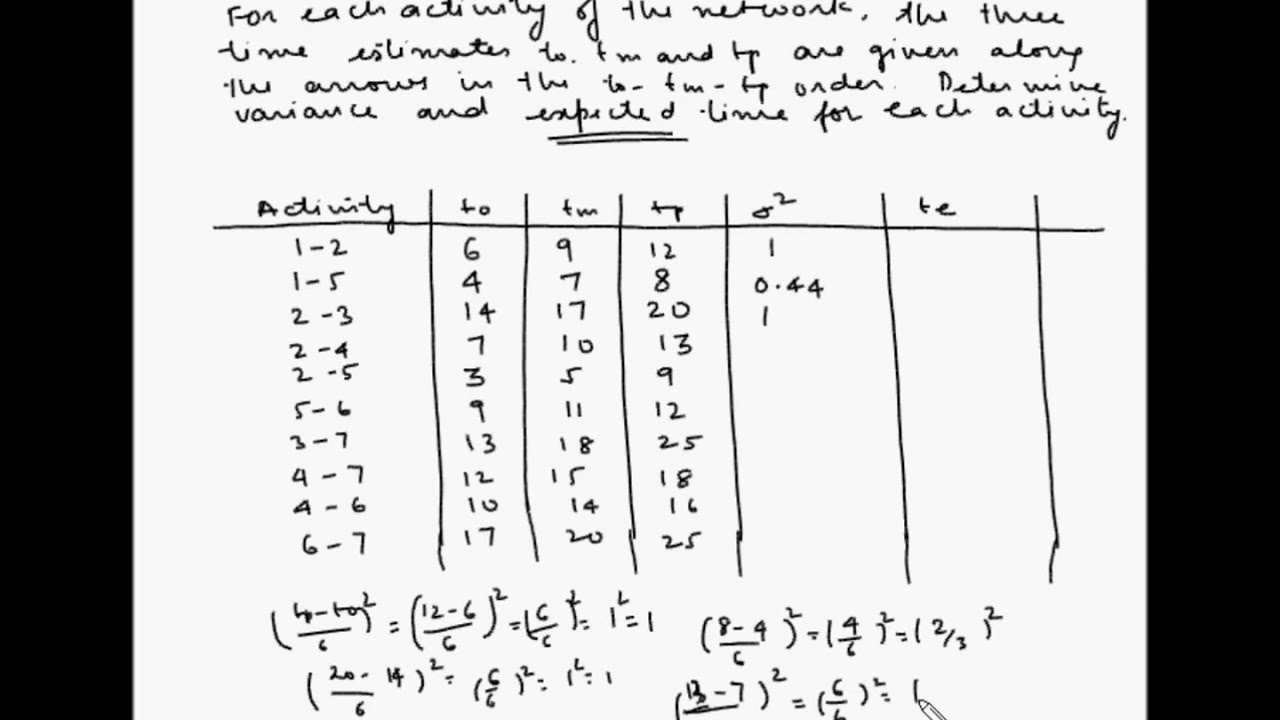 For each activity of the network, the three
time estimates to. tm and tp are given along
the arrows in the to - tm - tp order. Determine
variance and expected time for each activity.
Activity to tm tp σ² te
1-2 6 9 12 1
1-5 4 7 8 0.44
2-3 14 17 20 1
2-4 7 10 13
2-5 3 5 9
5-6 9 11 12
3-7 13 18 25
4-7 12 15 18
4-6 10 14 16
6-7 17 20 25
(tp-to/6)² = (12-6/6)² = (6/6)² = 1² = 1 (8-4/6)² = (4/6)² = (2/3)²
(20-14/6)² = (6/6)² = 1² = 1 (13-7)² = (6/6)² = (